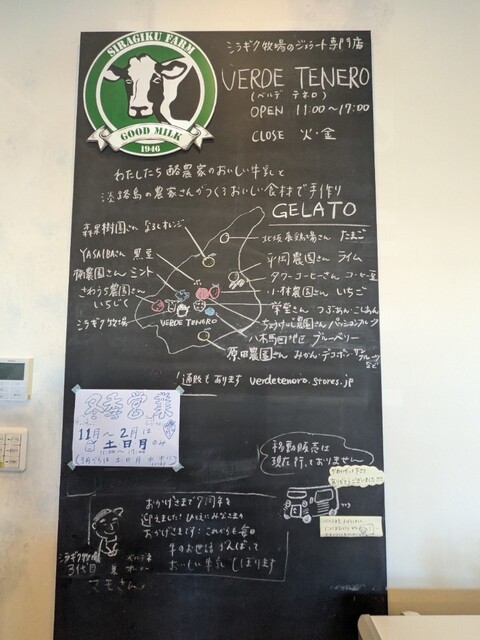 SIRAGIKU FARM
GOOD MILK
1946
シラギク牧場のジェラート専門店
VERDE TENERO
(ベルデ テネロ)
OPEN 11:00～17:00
CLOSE 火・金
わたしたち酪農家のおいしい牛乳と
淡路島の農家さんがつくるおいしい食材で手作り
GELATO
森果樹園さん なるとオレンジ
北坂養鶏場さん たまご
YASAIBAさん 黒豆
平岡農園さん ライム
柳農園さん ミント
タワーコーヒーさん コーヒー豆
さわうち農園さん いちじく
小林農園さん いちご
栄堂さん つぶあん・こしあん
シラギク牧場
VERDE TENERO
パッションフルーツ
八木馬回地区 ブルーベリー
原田農園さん みかん・デコポン
など
!通販もあります verdetenero.stores.jp
冬季営業
11月～2月は
土日月のみ
11:00～17:00
移動販売は
現在行っておりません
ありがとうございました
おかげさまで7周年を
迎えました! ひとえにみなさまの
おかげさまです! これからも毎日
牛のお世話がんばって
おいしい牛乳しぼります
シラギク牧場
3代目